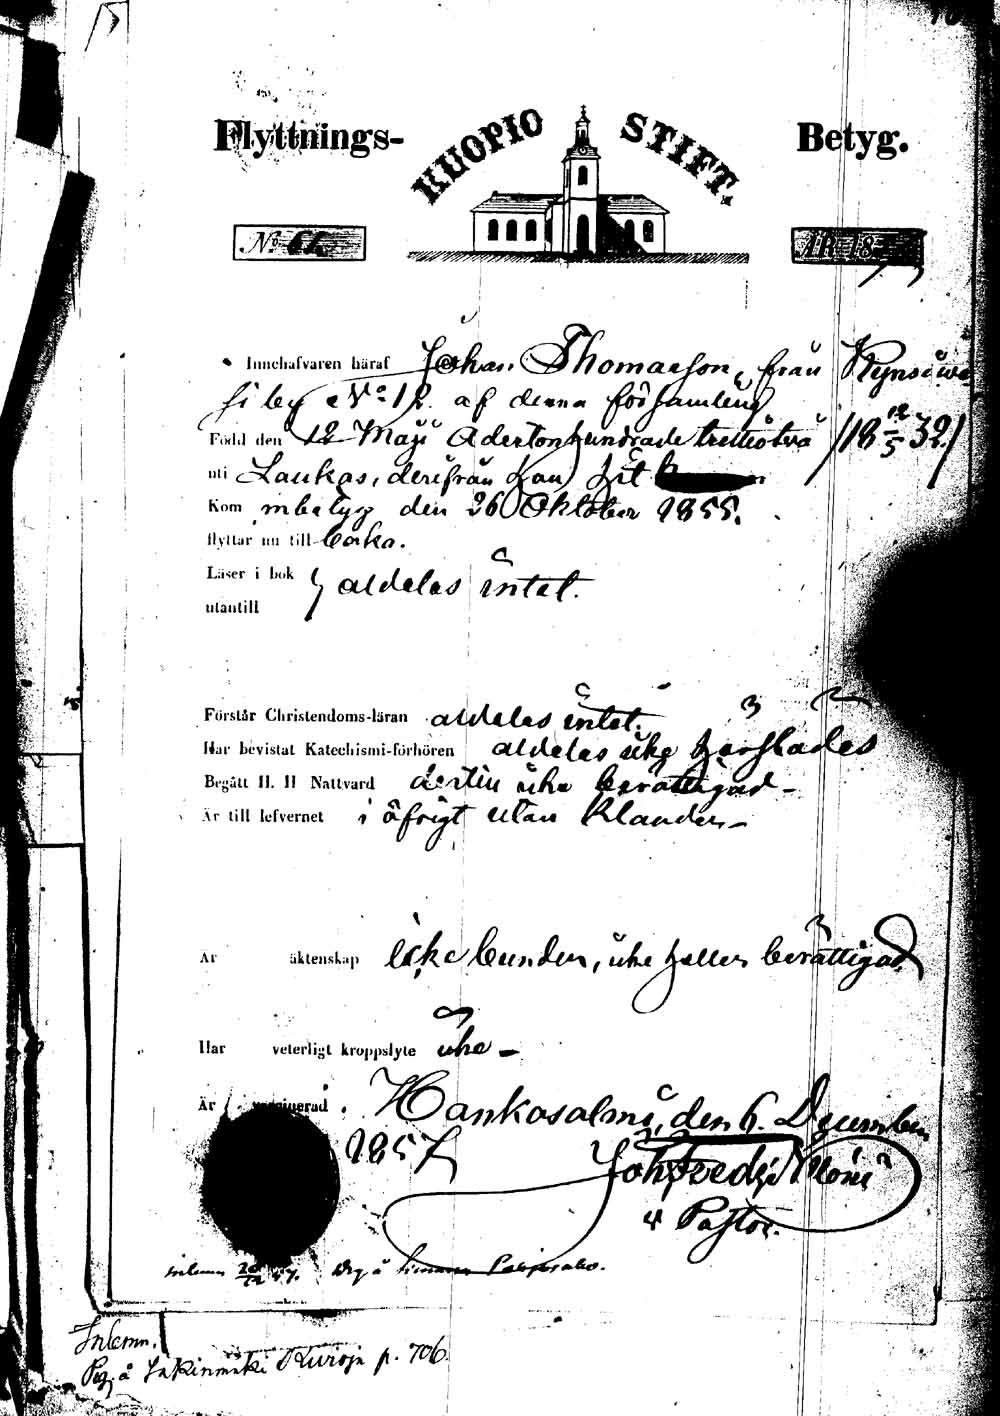 Flyttnings- KUOPIO STIFT. Betyg.
No
ÅR 18
Innehafvaren häraf Johan Thomasson, från
by No 12. af denna församling
Född den 12 Maji Adertonhundrade trettiotvå /18 12/5 32./
uti Laukas, derifrån han hit
Kom mbetyg den 26 Oktober 1855.
flyttar nu till
Läser i bok } aldeles intet.
utantill
Förstår Christendoms-läran aldeles intet.
Har bevistat Katechismi-förhören aldeles icke
Begått H. H Nattvard dertill icke berättigad –
Är till lefvernet i öfrigt utan klander –
Är äktenskap icke bunden, icke heller berättigad
Har veterligt kroppslyte icke –
Är vaccinerad. Hankasalmi, den 6. December
1857
Pastor.
Inlemn.
Pag. å p. 706.